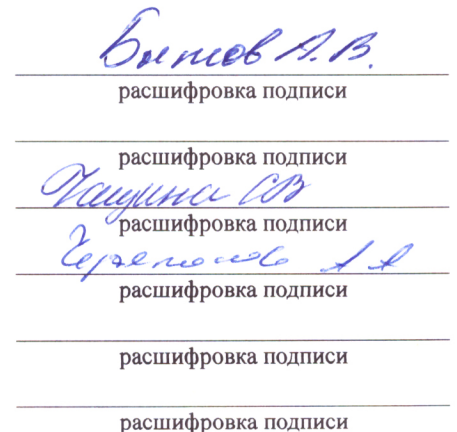 Бытов А.В.
расшифровка подписи
расшифровка подписи
СВ
расшифровка подписи
А А
расшифровка подписи
расшифровка подписи
расшифровка подписи